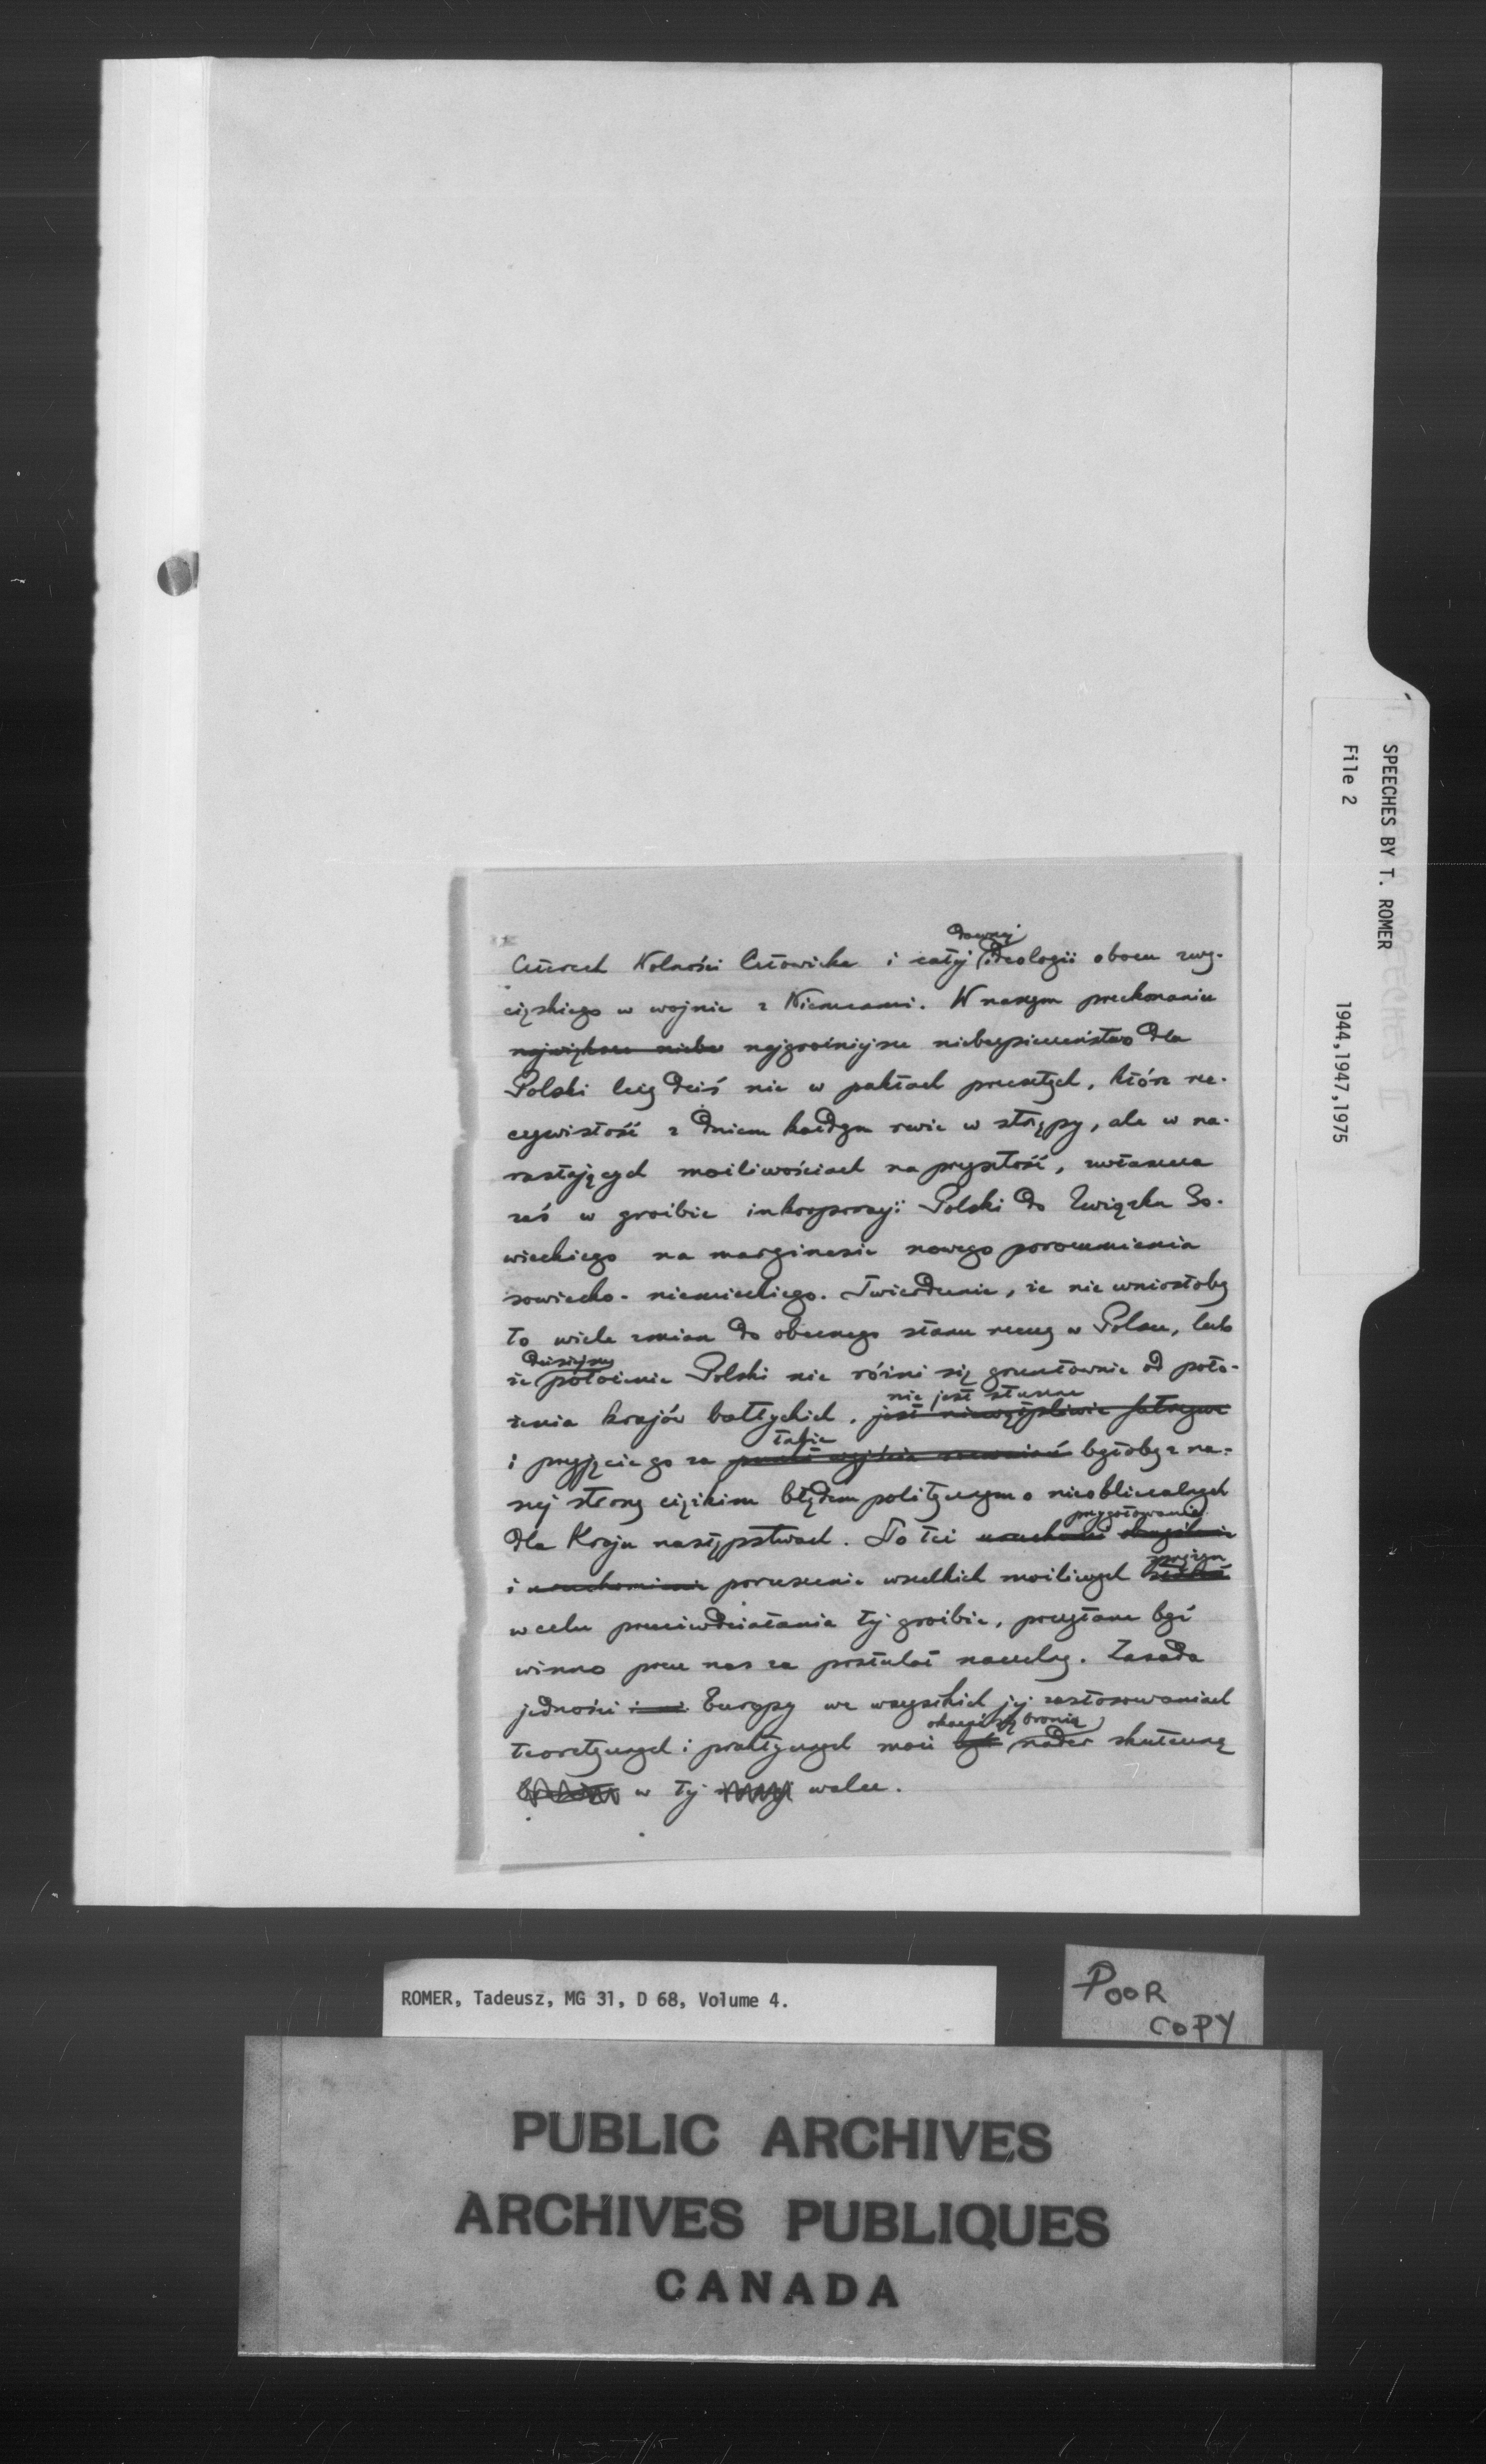 SPEECHES BY T. ROMER
File 2
1944,1947,1975
dawnej
Czterech Wolności Człowieka i całej ideologii obozu zwy-
cięskiego w wojnie z Niemcami. W naszym przekonaniu
największe niebez najgroźniejsze niebezpieczeństwo dla
Polski leży dziś nie w paktach przeszłych, które rze-
czywistość z dniem każdym rwie w strzępy, ale w na-
rastających możliwościach na przyszłość, zwłaszcza
zaś w groźbie inkorporacji Polski do Związku So-
wieckiego na marginesie nowego porozumienia
sowiecko-niemieckiego. Twierdzenie, że nie wniosłoby
to wiele zmian do obecnego stanu rzeczy w Polsce, lub
dzisiejsze
że położenie Polski nie różni się gruntownie od poło-
nie jest słuszne
żenia krajów bałtyckich, jest niewątpliwie fałszywe
takie
i przyjęcie go za punkt wyjścia rozważań byłoby z na-
szej strony ciężkim błędem politycznym o nieobliczalnych
przygotowanie
dla Kraju następstwach. To też
i uruchomienie poruszenie wszelkich możliwych
sprężyn
w celu przeciwdziałania tej groźbie, przyjęte być
winno przez nas za postulat naczelny. Zasada
jedności Europy we wszystkich jej zastosowaniach
okazać się bronią
teoretycznych i praktycznych może być nader skuteczną
w tej walce.
ROMER, Tadeusz, MG 31, D 68, Volume 4.
POOR
COPY
PUBLIC ARCHIVES
ARCHIVES PUBLIQUES
CANADA